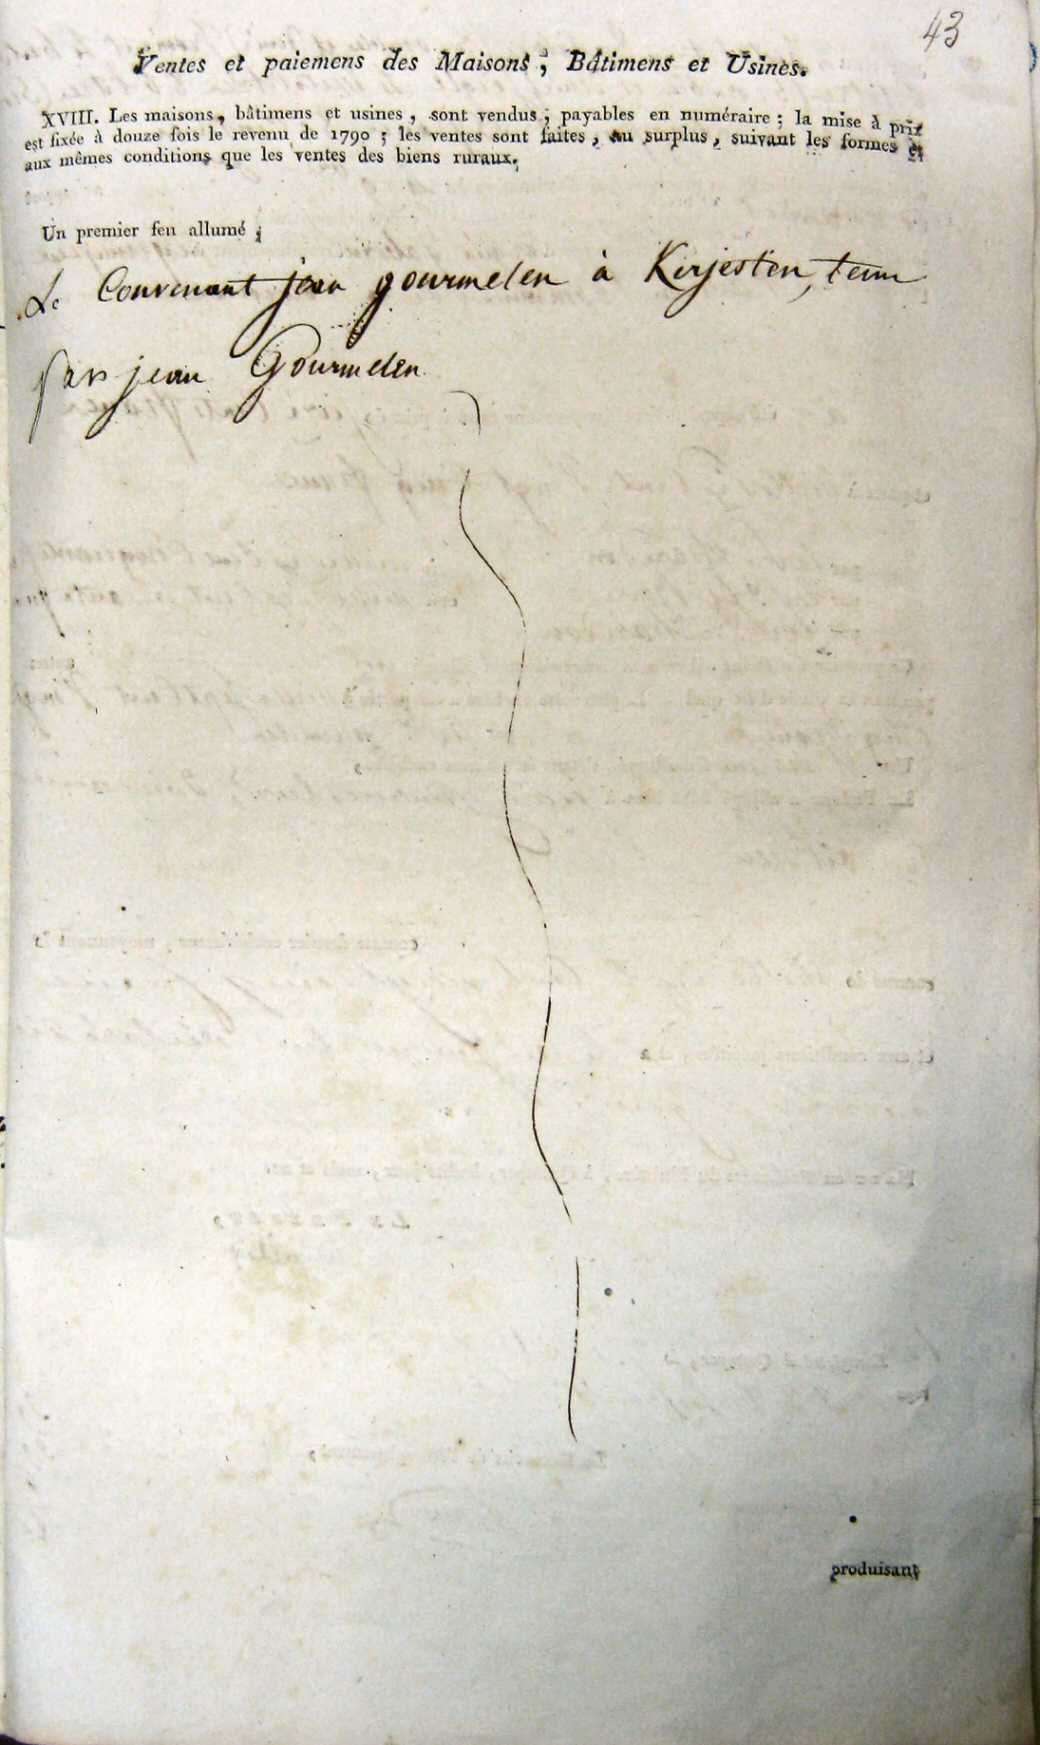 43
Ventes et paiemens des Maisons, Bâtimens et Usines.
XVIII. Les maisons, bâtimens et usines, sont vendus, payables en numéraire ; la mise à prix
est fixée à douze fois le revenu de 1790 ; les ventes sont faites, au surplus, suivant les formes et
aux mêmes conditions que les ventes des biens ruraux.
Un premier feu allumé ;
Le Convenant jean gourmelen à Kerjesten, tenu
par jean Gourmelen
produisant